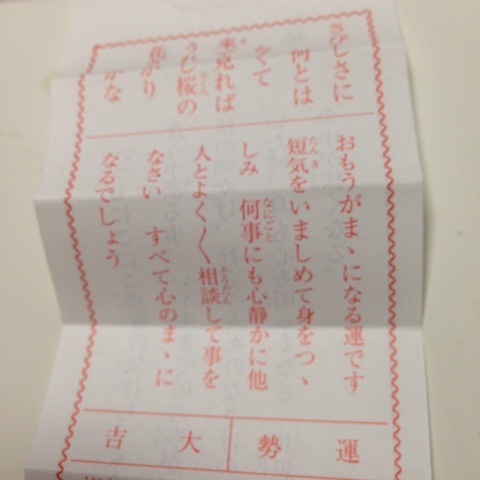 さびしさに
何とは
なくて
来て見れば
うす桜の
花ざかり
かな
おもうがまゝになる運です
短気をいましめて身をつゝ
しみ　何事にも心静かに他
人とよく〳〵相談して事を
なさい　すべて心のまゝに
なるでしょう
運勢
大吉